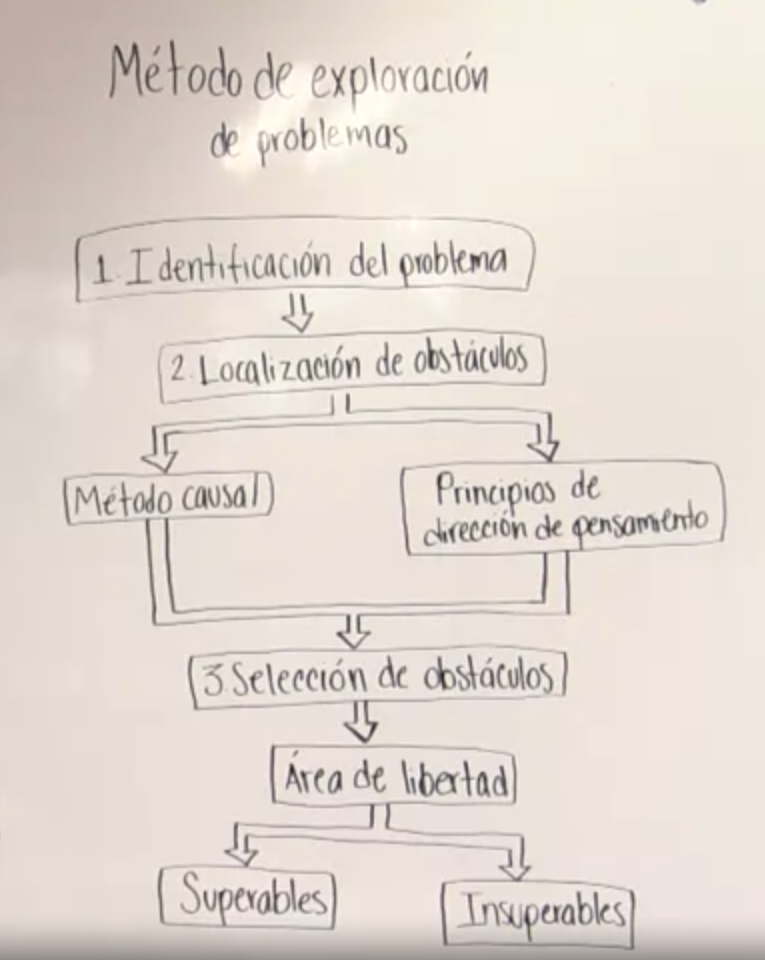 Método de exploración
de problemas
1. Identificación del problema
2. Localización de obstáculos
Método causal
Principios de
dirección de pensamiento
3. Selección de obstáculos
Área de libertad
Superables
Insuperables